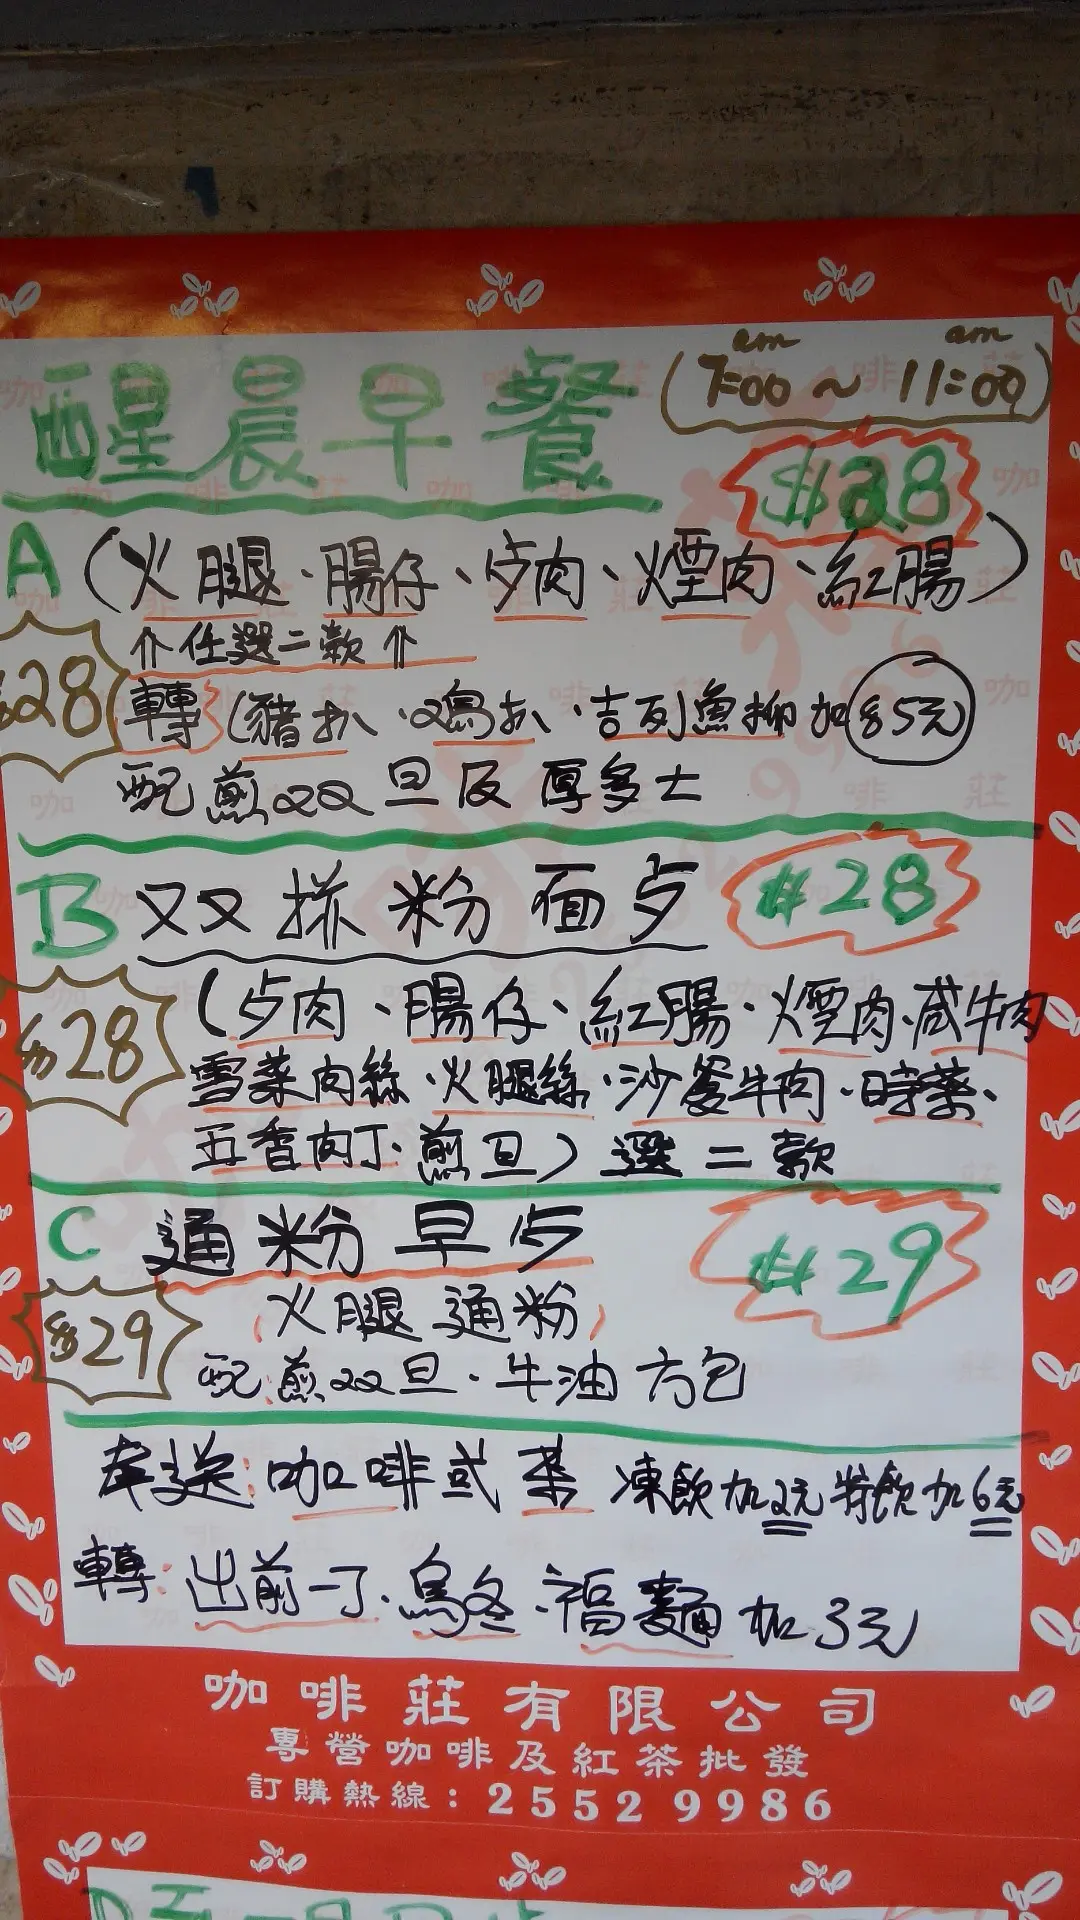 醒晨早餐 (7:00am ~ 11:00am)
$28
A (火腿、腸仔、歺肉、煙肉、紅腸)
⇑任選二款⇑
$28
轉(豬扒、又鳥扒、吉列魚柳加$5元
配煎双旦及厚多士
B 双拼粉面歺 $28
$28
(歺肉、腸仔、紅腸、煙肉、咸牛肉
雪菜肉絲、火腿絲、沙爹牛肉、時菜、
五香肉丁、煎旦)選二款
C 通粉早歺 $29
$29
(火腿通粉)
配:煎双旦、牛油方包
奉送:咖啡或茶 凍飲加2元 特飲加6元
轉:出前一丁、烏冬、福麵加3元
咖啡莊有限公司
專營咖啡及紅茶批發
訂購熱線：2552 9986